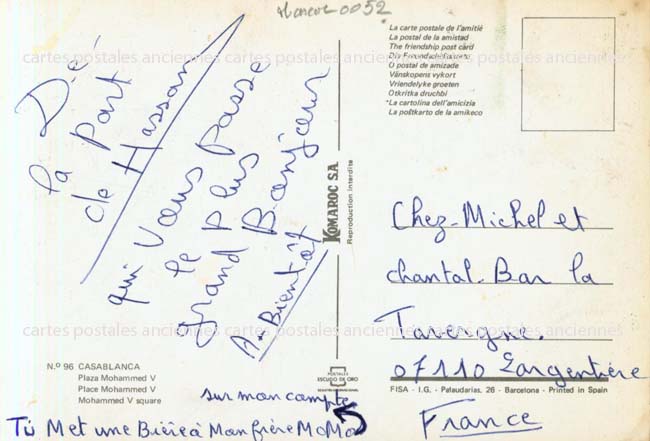 Maroc 0052
La carte postale de l'amitié
La postal de la amistad
The friendship post card
Die Freundschaftskarte
O postal de amizade
Vänskopens vykort
Vriendelyke groeten
Otkritka druchbi
La cartolina dell'amicizia
La poŝtkarto de la amikeco
cartes postales anciennes cartes postales anciennes cartes postales anciennes
De
la part
de Hassan
qui Vous passe
le plus
grand Bonjour
A Bientôt
KOMAROC S.A.
Reproduction interdite
Chez-Michel et
chantal-Bar la
Tavergne.
07110 Largentière
France
cartes postales anciennes cartes postales anciennes cartes postales anciennes
N.º 96 CASABLANCA
Plaza Mohammed V
Place Mohammed V
Mohammed V square
POSTALES
ESCUDO DE ORO
FISA - I.G. - Palaudarias, 26 - Barcelona - Printed in Spain
sur mon compte
Tu Met une Bière à Mon frère MoMo